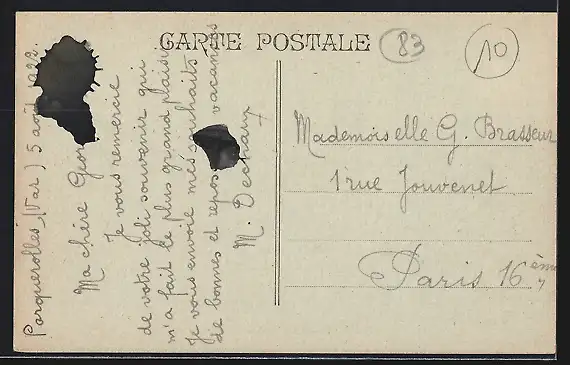 CARTE POSTALE
83
10
Porquerolles (Var) 5 août 1922.
Ma chère
Je vous remercie
de votre joli souvenir qui
m'a fait le plus grand plaisir
Je vous envoie mes souhaits
de bonnes et repos vacances
M. Dechaux
Mademoiselle G. Brasseur
1 rue Jouvenet
Paris 16ème